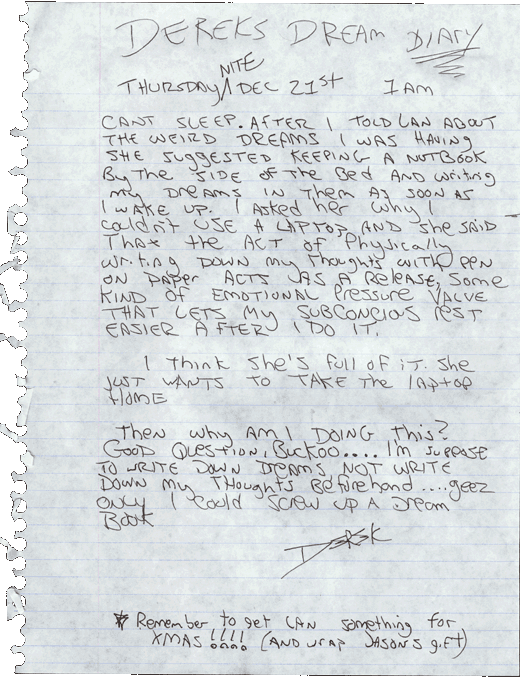 DEREKS DREAM DIARY
NITE
THURSDAY DEC 21st 1AM
CANT SLEEP. AFTER I TOLD LAN ABOUT
THE WEIRD DREAMS I WAS HAVING
SHE SUGGESTED KEEPING A NOTBOOK
By THE SIDE OF THE BED AND WRITING
MY DREAMS IN THEM AS SOON AS
I WAKE UP. I ASKED her why I
couldn't USE A LAPTOP AND she SAID
THAT the ACT of Physically
writing DOWN my thoughts WITH PEN
ON PAPER ACTS AS A RELEASE, SOME
KIND OF EMOTIONAL Pressure VALVE
THAT LETS MY SUBCONCIOUS REST
EASIER AFTER I DO IT.
I think she's full of iT. She
JUST WANTS TO TAKE The laptop
HOME
Then why AM I DOING This?
GOOD QUESTION, BUCKOO.... I'M SUPPOSE
TO WRITE DOWN DREAMS, NOT WRITE
DOWN MY THOUGHTS Beforehand....geez
ONLY I could SCREW UP A DREAM
BOOK
DEREK
* Remember to get LAN something for
XMAS !!!! (AND wrap JASON'S gift)